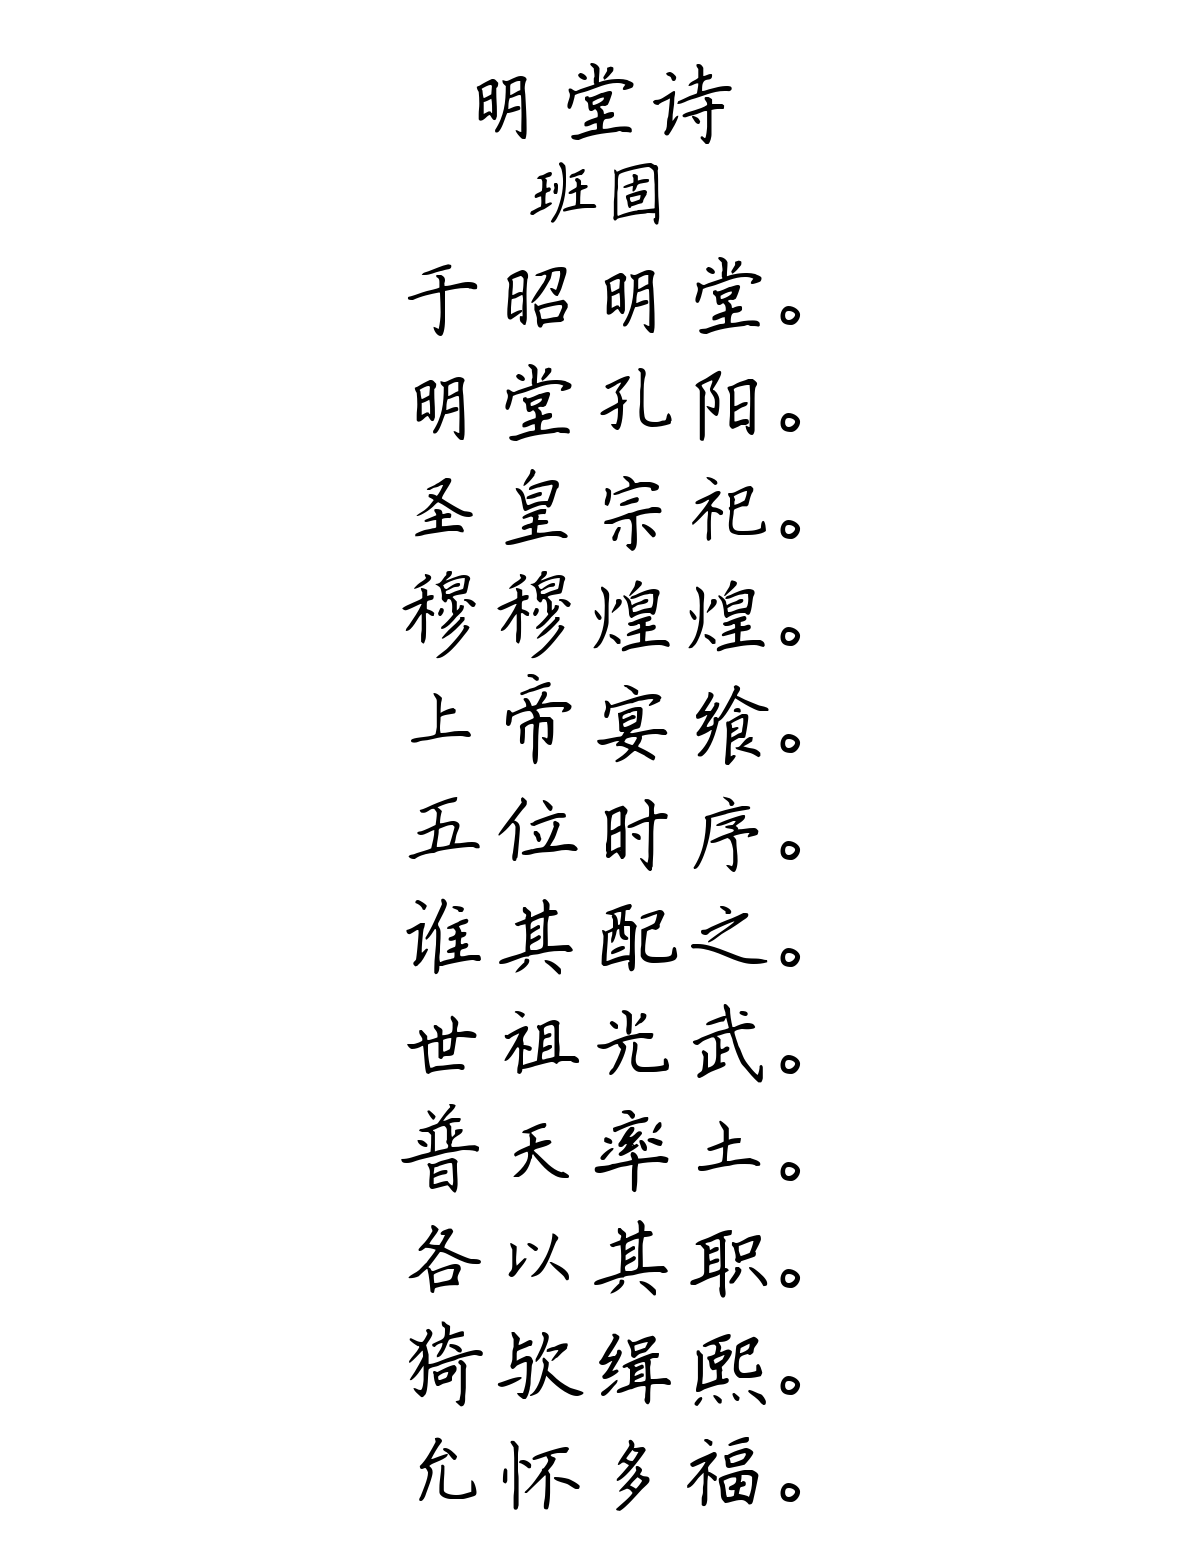 明堂诗
班固
于昭明堂。
明堂孔阳。
圣皇宗祀。
穆穆煌煌。
上帝宴飨。
五位时序。
谁其配之。
世祖光武。
普天率土。
各以其职。
猗欤缉熙。
允怀多福。